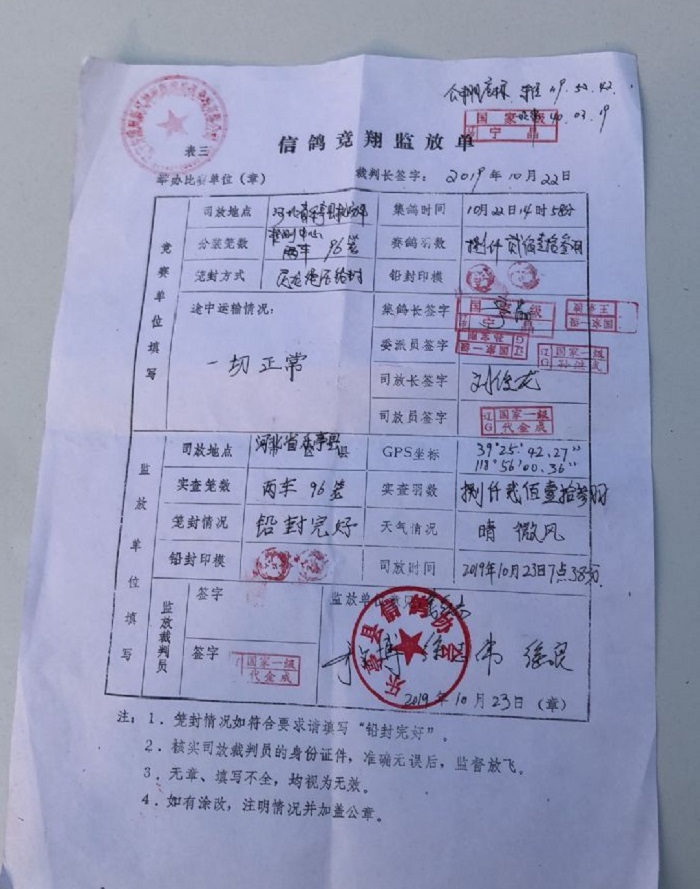 49.52.42.
国家级
辽宁晶
40.03.19
表三
信鸽竞翔监放单
举办比赛单位（章）
裁判长签字：2019年10月22日
竞赛单位填写
司放地点
集鸽时间 10月22日14时58分
分装笼数 两车96笼
赛鸽羽数 捌仟贰佰壹拾叁羽
笼封方式
铅封印模
途中运输情况：
一切正常
集鸽长签字
国 级
宁
委派员签字
国家一级
司放长签字
司放员签字
辽G国家一级
代金成
监放单位填写
司放地点 河北省乐亭县
GPS坐标 39°25'42.27"
118°56'00.36"
实查笼数 两车96笼
实查羽数 捌仟贰佰壹拾叁羽
笼封情况 铅封完好
天气情况 晴 微风
铅封印模
司放时间 2019年10月23日7点38分
监放裁判员
签字
签字
国家一级
代金成
监放单位
乐亭县信鸽协会
2019年10月23日（章）
注：1．笼封情况如符合要求请填写“铅封完好”。
2．核实司放裁判员的身份证件，准确无误后，监督放飞。
3．无章、填写不全，均视为无效。
4．如有涂改，注明情况并加盖公章。